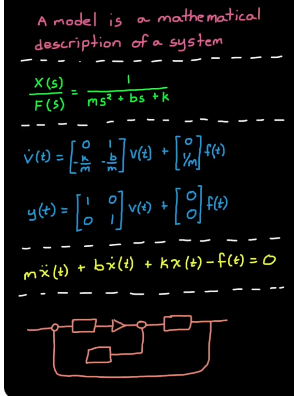 A model is a mathematical
description of a system
X(s)/F(s) = 1/(ms² + bs + k)
v̇(t) = [0 1; -k/m -b/m] v(t) + [0; 1/m] f(t)
y(t) = [1 0; 0 1] v(t) + [0; 0] f(t)
mẍ(t) + bẋ(t) + kx(t) - f(t) = 0